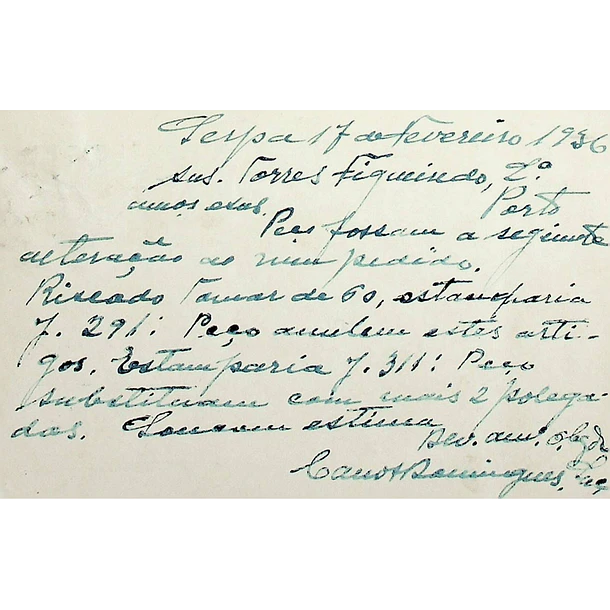 Serpa 17 de Fevereiro 1936
Snrs. Torres Figueiredo, L.ª
Porto
amos e snrs.
Peço fossam a seginete
alteração ao mim pedido.
Riscado Tamar de 60, estamparia
J. 291: Peço anulem estes arti-
gos. Estamparia J. 311: Peço
substituam com mais 2 polega-
das. Com estima
Dev. am. obgdo
Domingues,